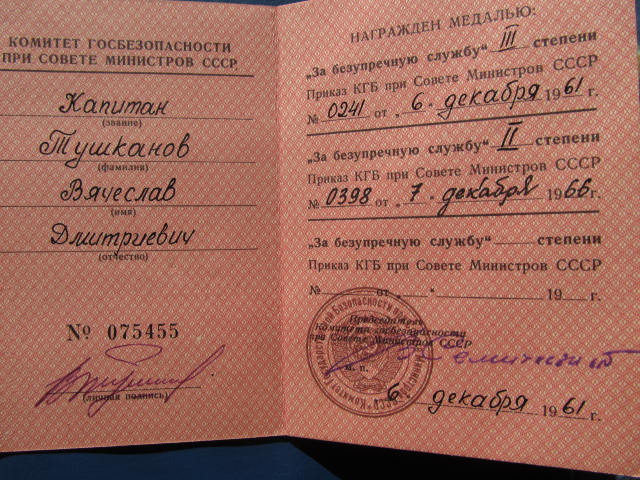 КОМИТЕТ ГОСБЕЗОПАСНОСТИ
ПРИ СОВЕТЕ МИНИСТРОВ СССР
Капитан
(звание)
Тушканов
(фамилия)
Вячеслав
(имя)
Дмитриевич
(отчество)
№ 075455
(личная подпись)
НАГРАЖДЕН МЕДАЛЬЮ:
„За безупречную службу“ III степени
Приказ КГБ при Совете Министров СССР
№ 0241 от „6“ декабря 1961 г.
„За безупречную службу“ II степени
Приказ КГБ при Совете Министров СССР
№ 0398 от „7“ декабря 1966 г.
„За безупречную службу“ степени
Приказ КГБ при Совете Министров СССР
№ от „ “ 19 г.
Председатель
Комитета госбезопасности
при Совете Министров СССР
М. п.
6 декабря 1961 г.